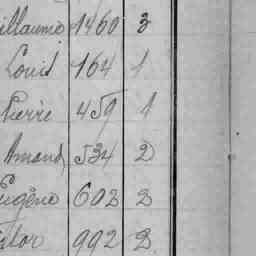 illaume 1460 3
Louis 164 1
Pierre 459 1
Amand 534 2
Eugène 602 2
992 2